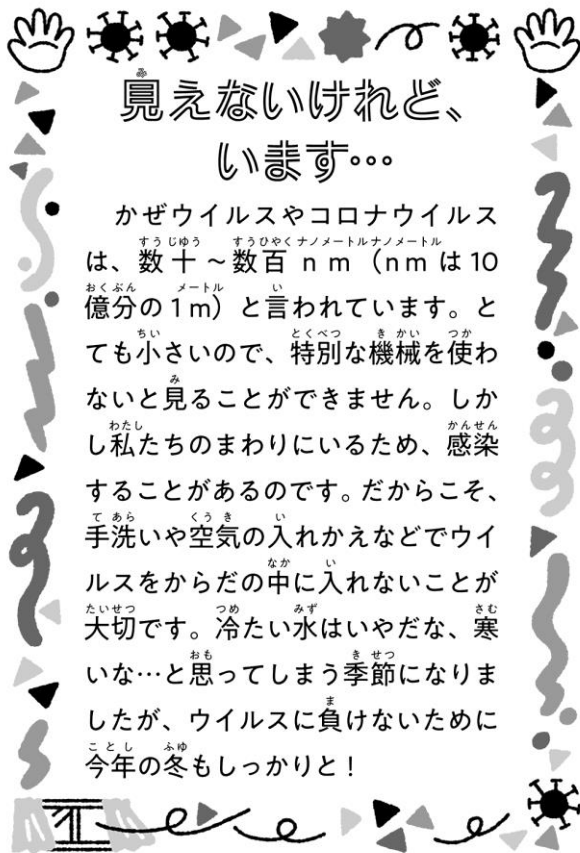 見えないけれど、
います…
かぜウイルスやコロナウイルス
は、数十~数百nm(nmは10
億分の1m)と言われています。と
ても小さいので、特別な機械を使わ
ないと見ることができません。しか
し私たちのまわりにいるため、感染
することがあるのです。だからこそ、
手洗いや空気の入れかえなどでウイ
ルスをからだの中に入れないことが
大切です。冷たい水はいやだな、寒
いな…と思ってしまう季節になりま
したが、ウイルスに負けないために
今年の冬もしっかりと!